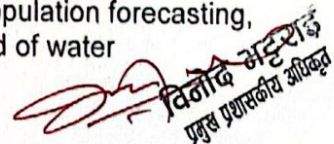 pulation forecasting,
d of water
विनोद भट्टराई
प्रमुख प्रशासकीय अधिकृत